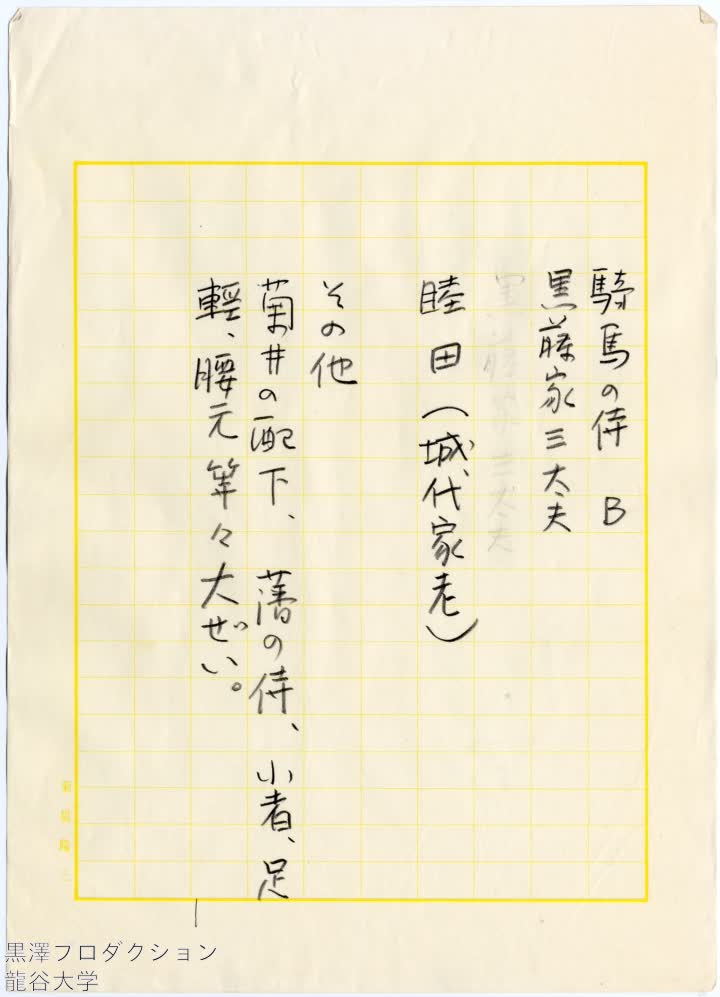 騎馬の侍 B
黒藤家三太夫
黒藤家三太夫
睦田（城代家老）
その他
菊井の配下、藩の侍、小者、足
軽、腰元等々大ぜい。
黒澤プロダクション
龍谷大学